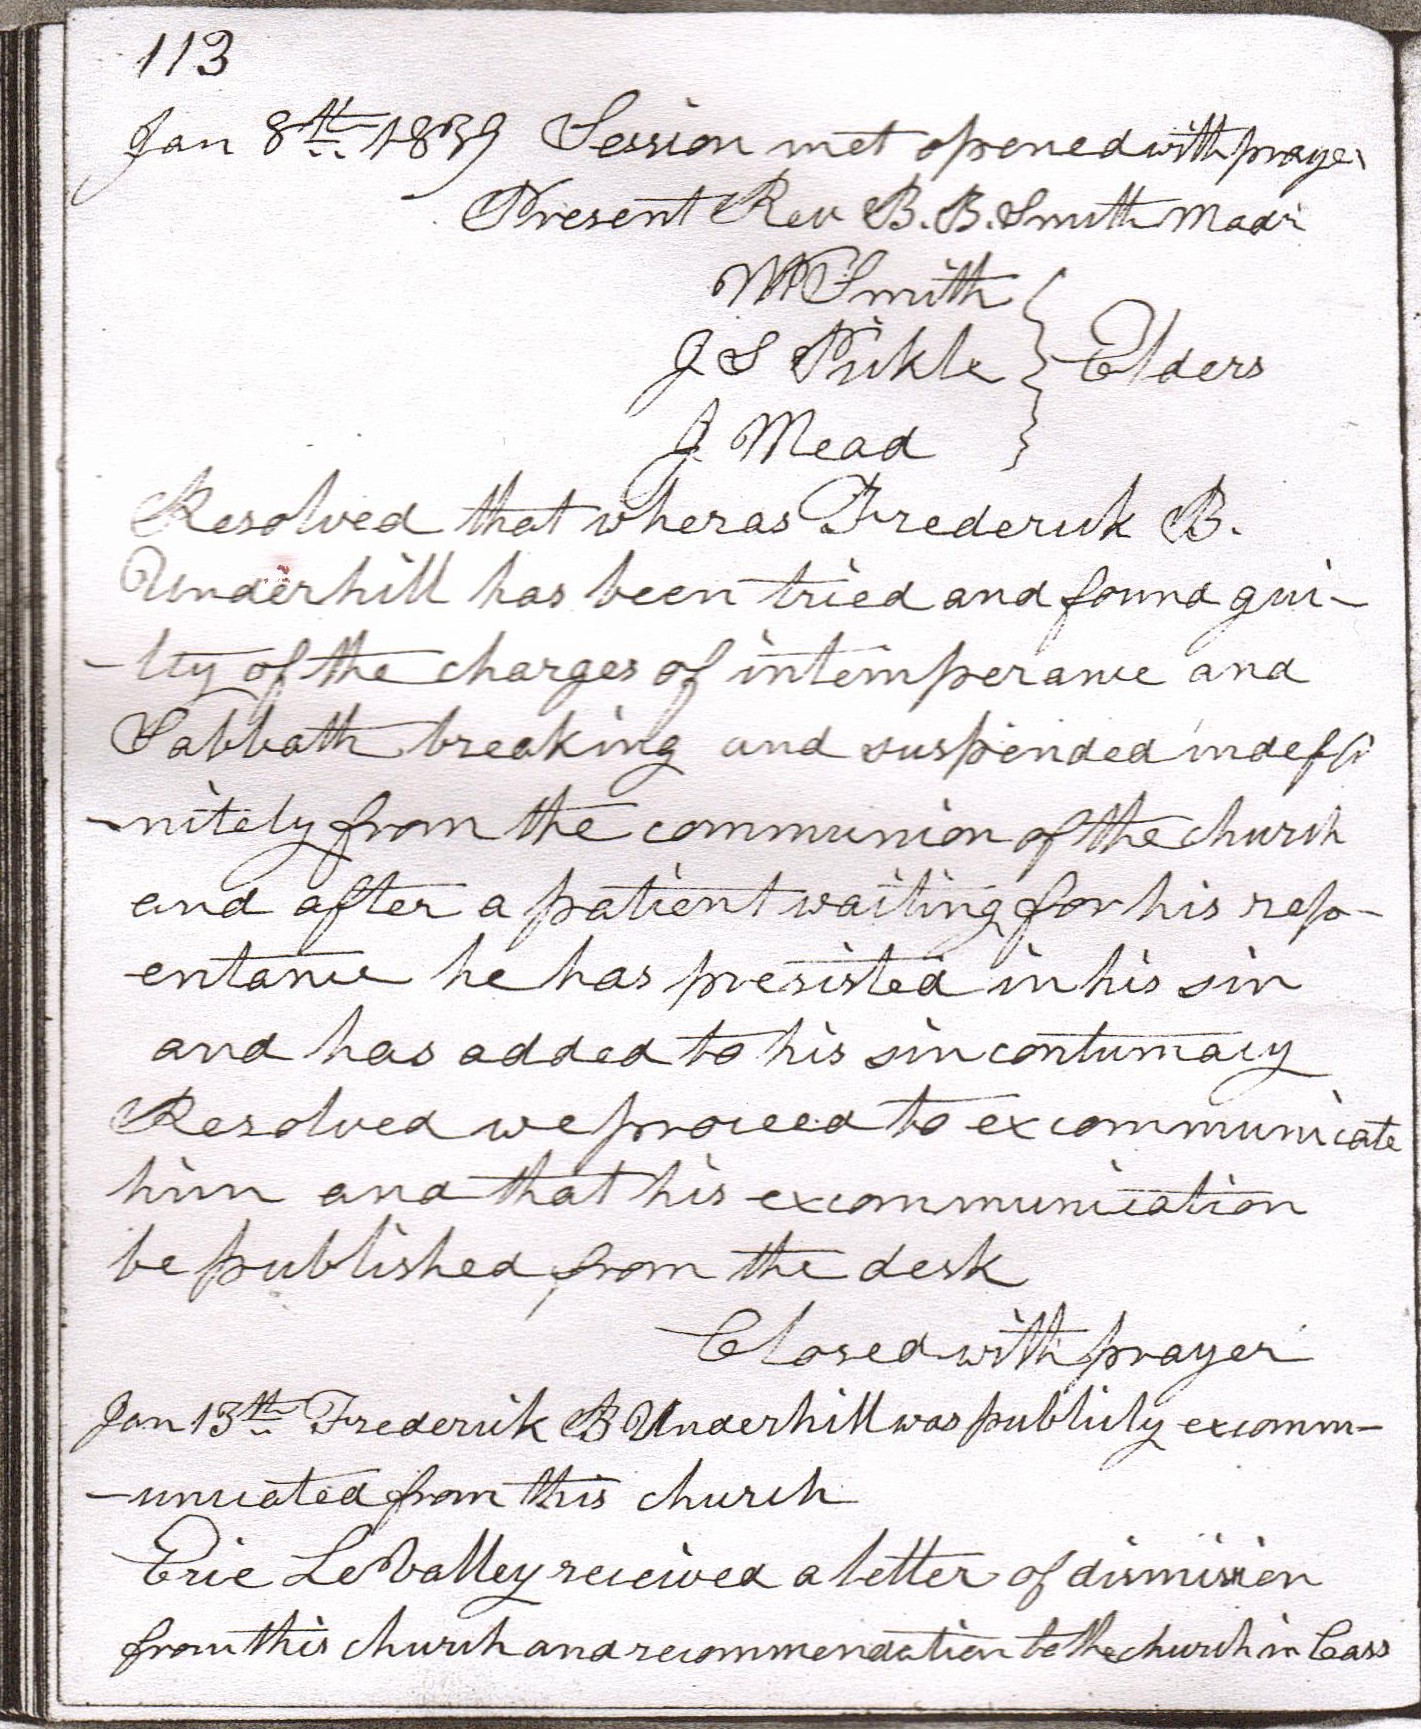 113
Jan 8th 1839 Session met opened with prayer
Present Rev B. B. Smith Modr
W Smith
J S Pickle } Elders
J. Mead
Resolved that wheras Frederick B.
Underhill has been tried and found gui-
-lty of the charges of intemperance and
Sabbath breaking and suspended indefi
-nitely from the communion of the church
and after a patient waiting for his rep-
-entance he has presisted in his sin
and has added to his sin contumacy
Resolved we proceed to excommunicate
him and that his excommunication
be published from the desk
Closed with prayer
Jan 13th Frederick B Underhill was publicly excomm-
-unicated from this church
Eric LeValley received a letter of dismission
from this church and recommendation to the church in Cass